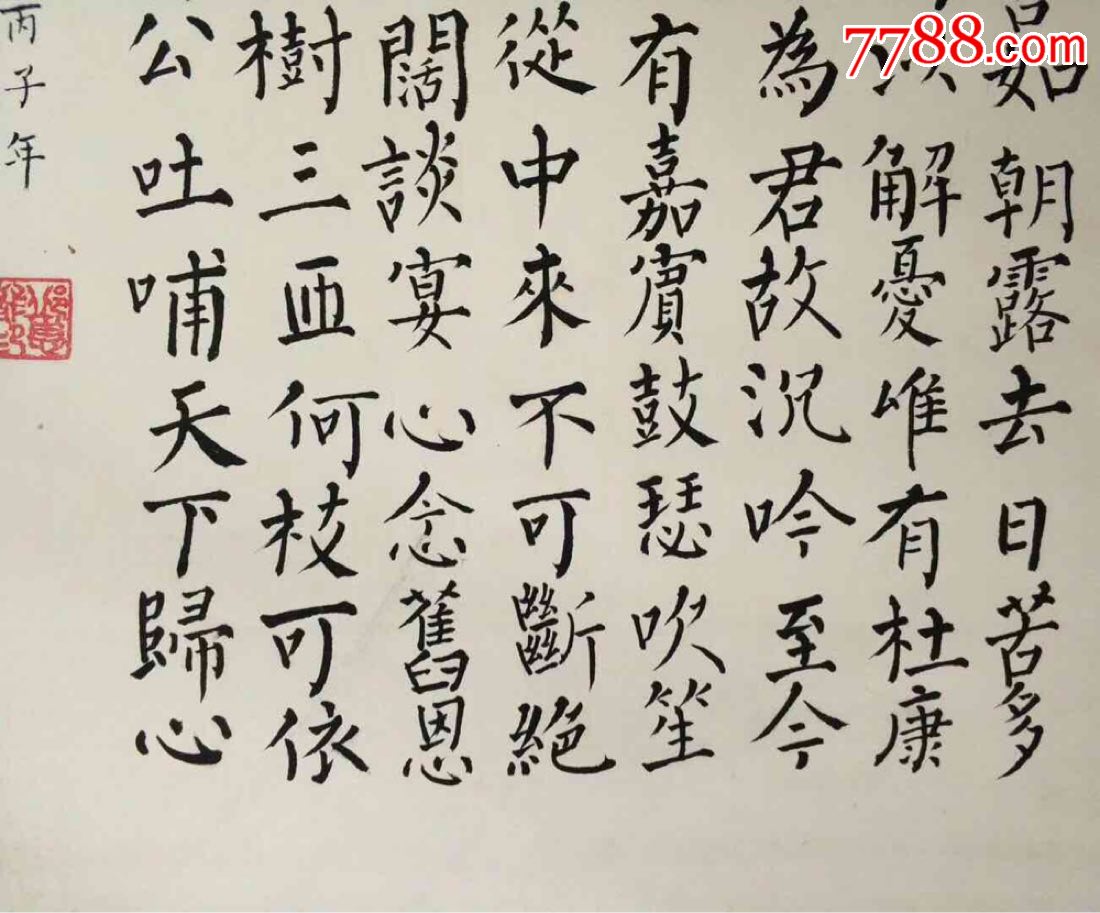 如朝露去日苦多
解憂唯有杜康
為君故沉吟至今
有嘉賓鼓瑟吹笙
從中來不可斷絕
闊談宴心念舊恩
樹三匝何枝可依
公吐哺天下歸心
丙子年
7788.com